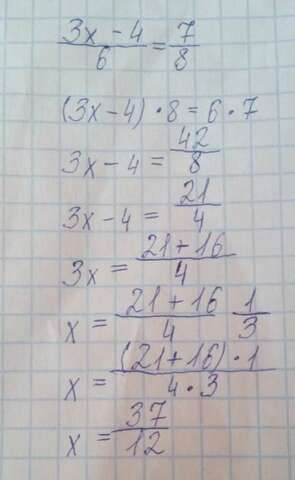 (3x - 4)/6 = 7/8
(3x - 4) · 8 = 6 · 7
3x - 4 = 42/8
3x - 4 = 21/4
3x = (21 + 16)/4
x = (21 + 16)/4 1/3
x = ((21 + 16) · 1)/(4 · 3)
x = 37/12